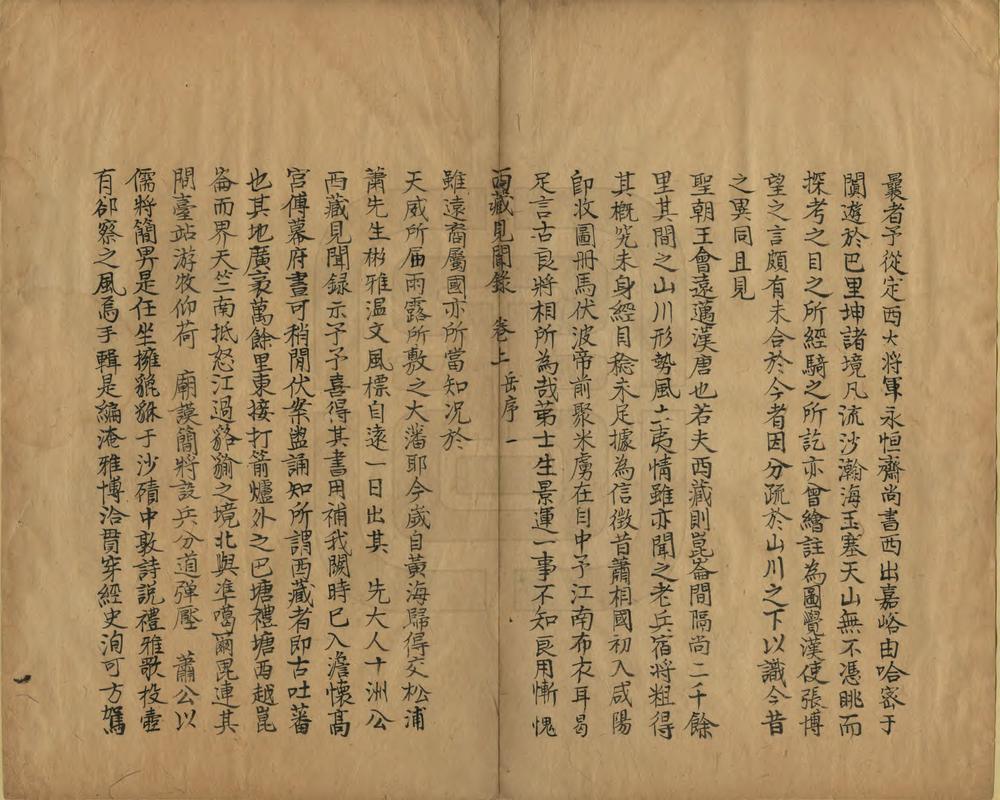 曩者予從定西大将軍永恒齋尚書西出嘉峪由哈宻于
闐遊於巴里坤諸境凡流沙瀚海玉塞天山無不憑眺而
探考之目之所經騎之所訖亦曾繪註為圖覺漢使張博
望之言頗有未合於今者因分疏於山川之下以識今昔
之異同且見
聖朝王會遠邁漢唐也若夫西藏則崑崙間隔尚二千餘
里其間之山川形勢風土夷情雖亦聞之老兵宿將粗得
其概究未身經目稔未足據為信徴昔蕭相國初入咸陽
即收圖冊馬伏波帝前聚米虜在目中予江南布衣耳曷
足言古良將相所為哉苐士生景運一事不知良用慚愧
西藏見聞錄　卷上　岳序　一
雖遠裔屬國亦所當知况於
天威所届雨露所敷之大藩耶今歲自黄海歸得交松浦
蕭先生彬雅温文風標自遠一日出其　先大人十洲公
西藏見聞録示予予喜得其書用補我闕時已入澹懷髙
宫傅幕府晝可稍閒伏案盥誦知所謂西藏者即古吐蕃
也其地廣袤萬餘里東接打箭爐外之巴塘禮塘西越崑
崙而界天竺南抵怒江過貉貐之境北與準噶爾毘連其
間臺站游牧仰荷　廟謨簡將設兵分道彈壓　蕭公以
儒將簡畀是任坐擁貔貅于沙磧中敦詩説禮雅歌投壺
有郤祭之風焉手輯是編淹雅博洽貫穿經史洵可方駕